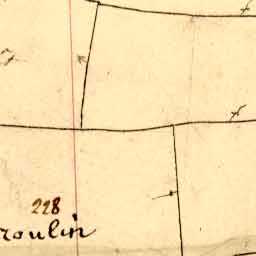 228
roulin